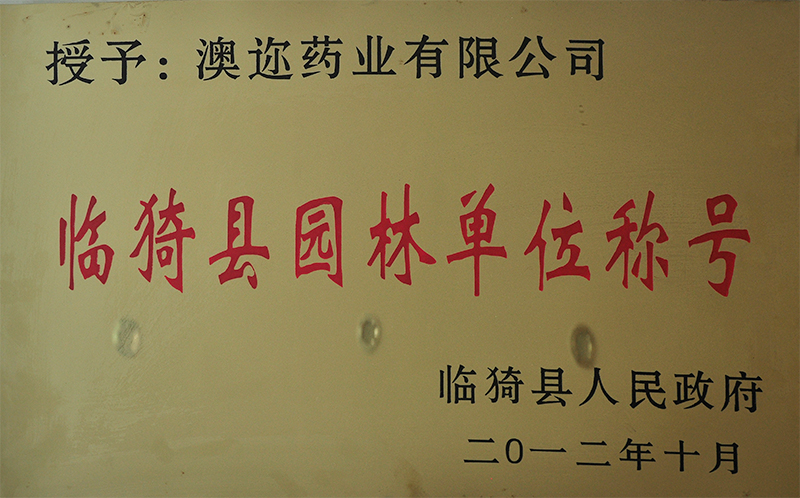 授予：澳迩药业有限公司
临猗县园林单位称号
临猗县人民政府
二〇一二年十月